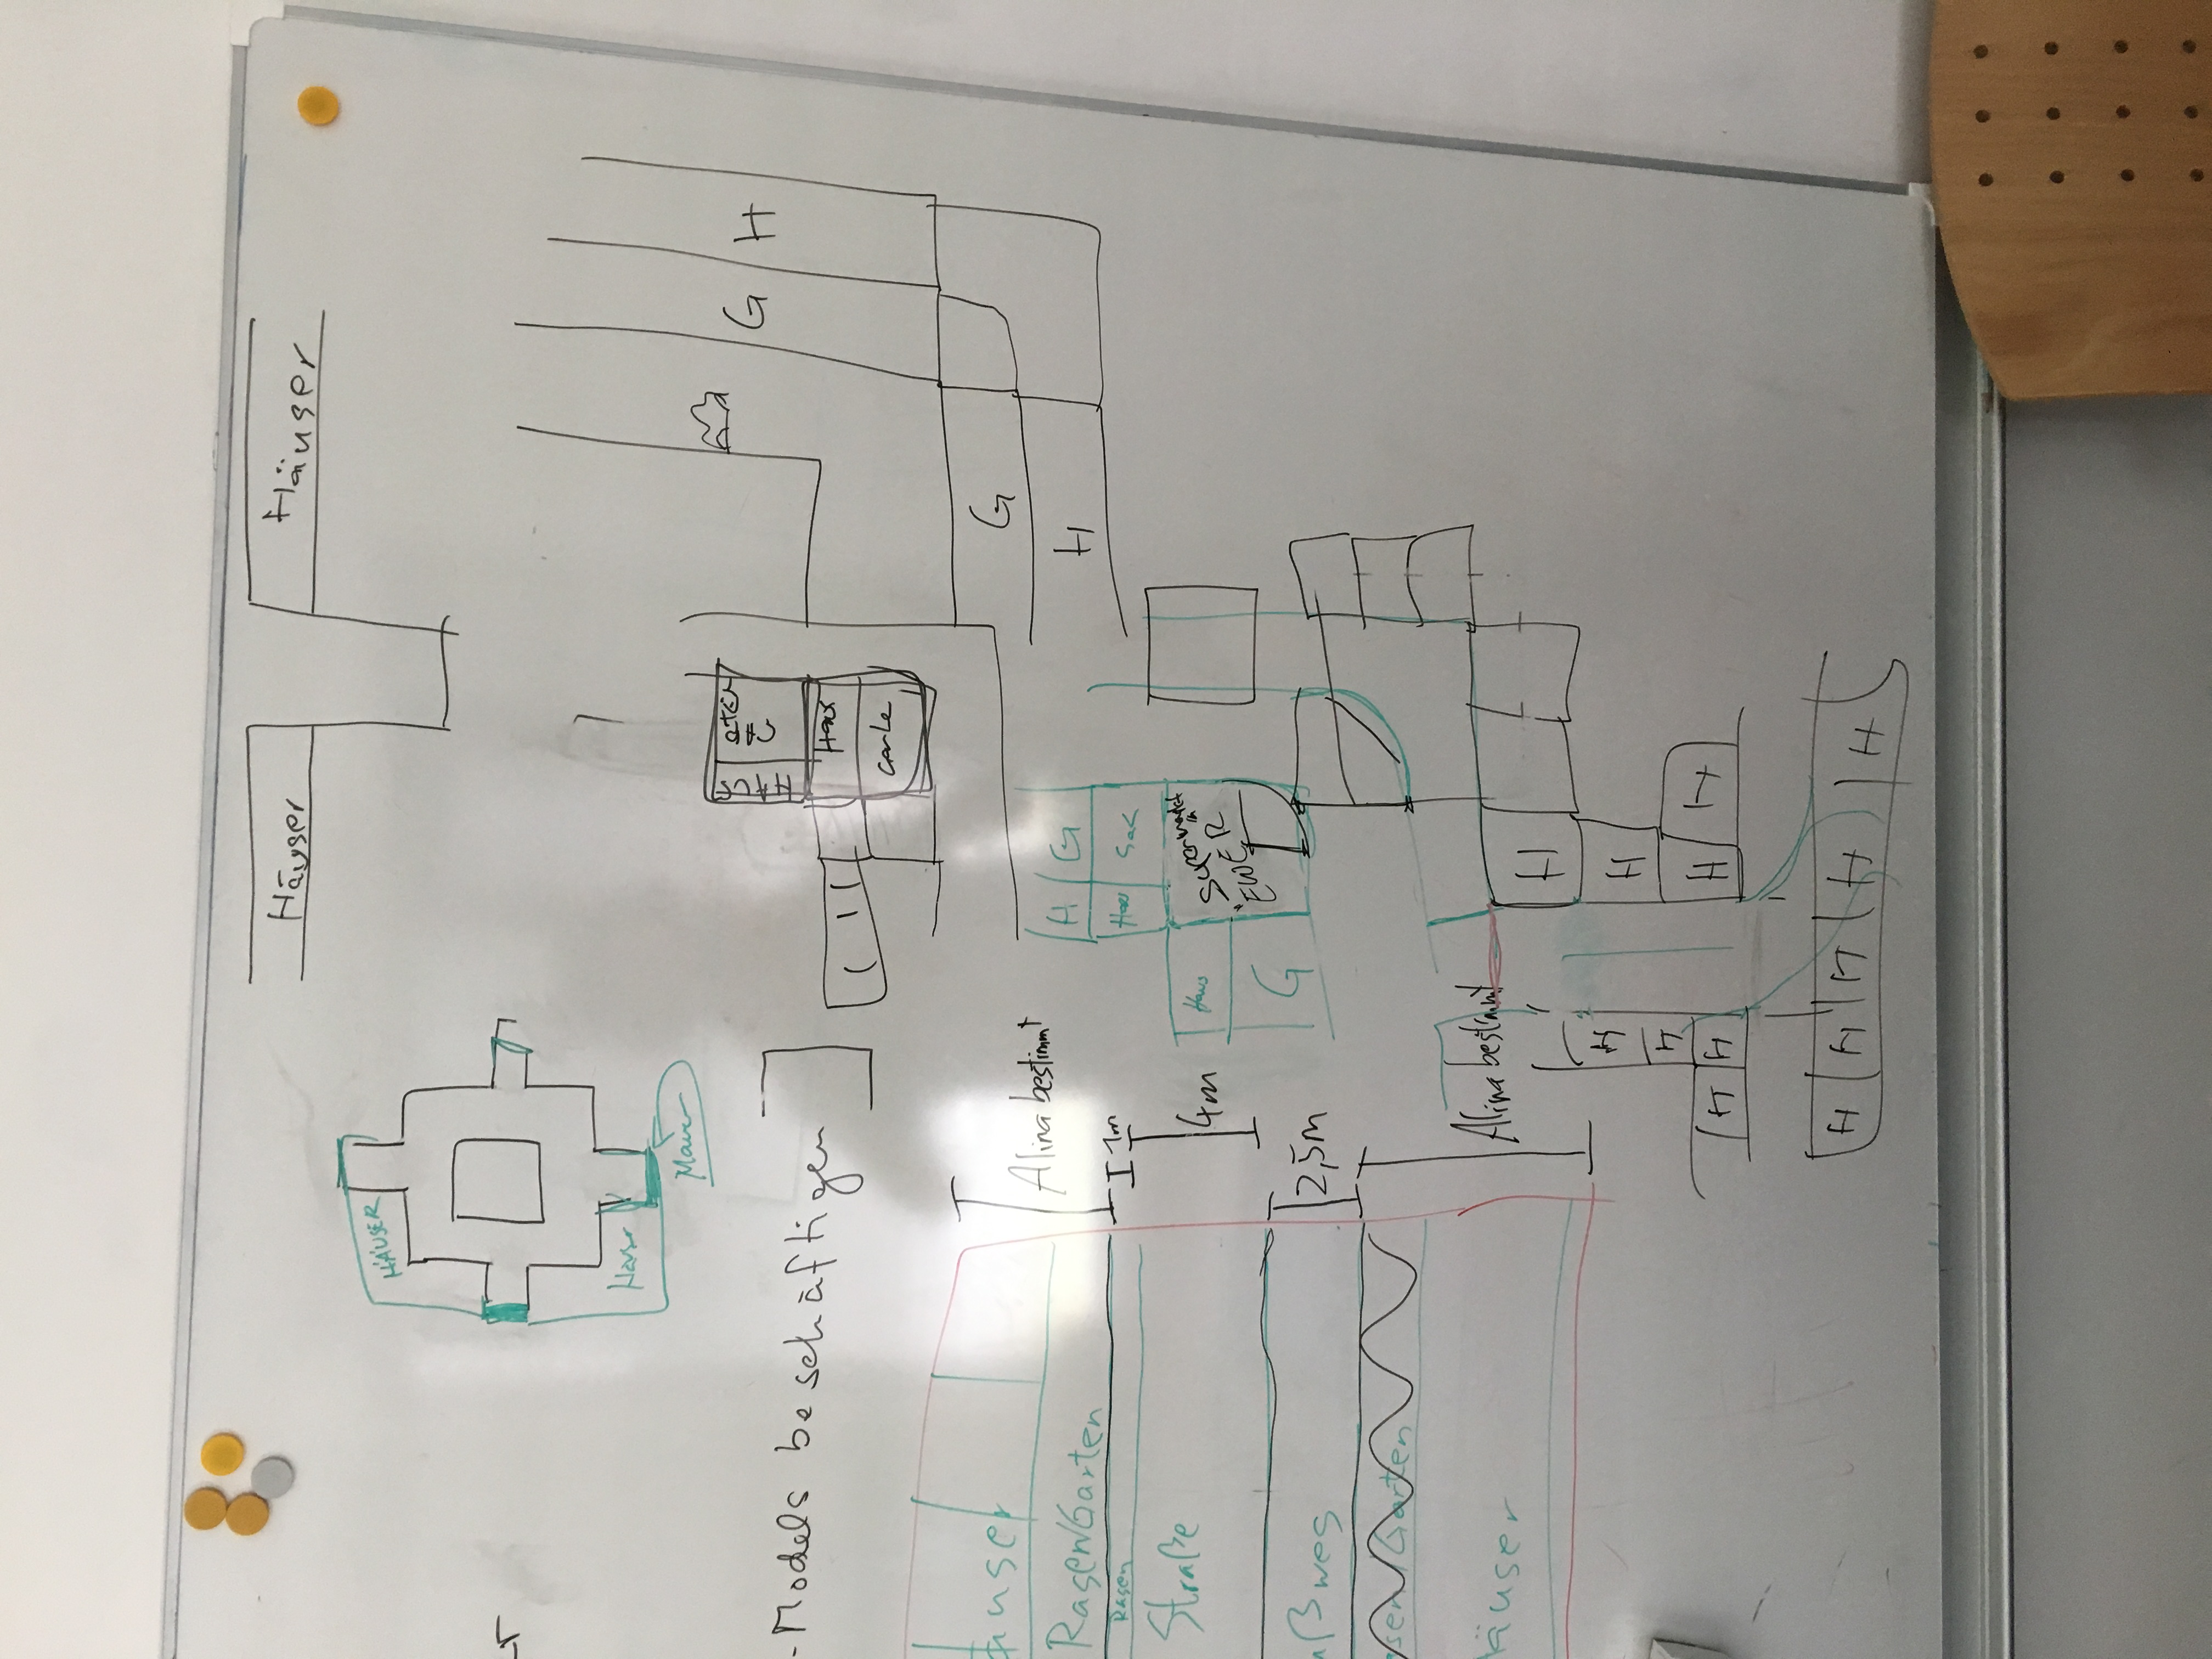 Häuser
Häuser
HÄUSER
Häuser
Mauer
-Models beschäftigen
HAUS
Haus
G
H
G
H
äuser
Rasen/Garten
Rasen
Straße
ußweg
asen/Garten
äuser
Alina bestimmt
1m
4m
2,5m
Alina bestimmt
H
G
Haus
Haus
G
Supermarkt
EWER
H
H
H
H
H
H
H
H
H
H
H
H
H